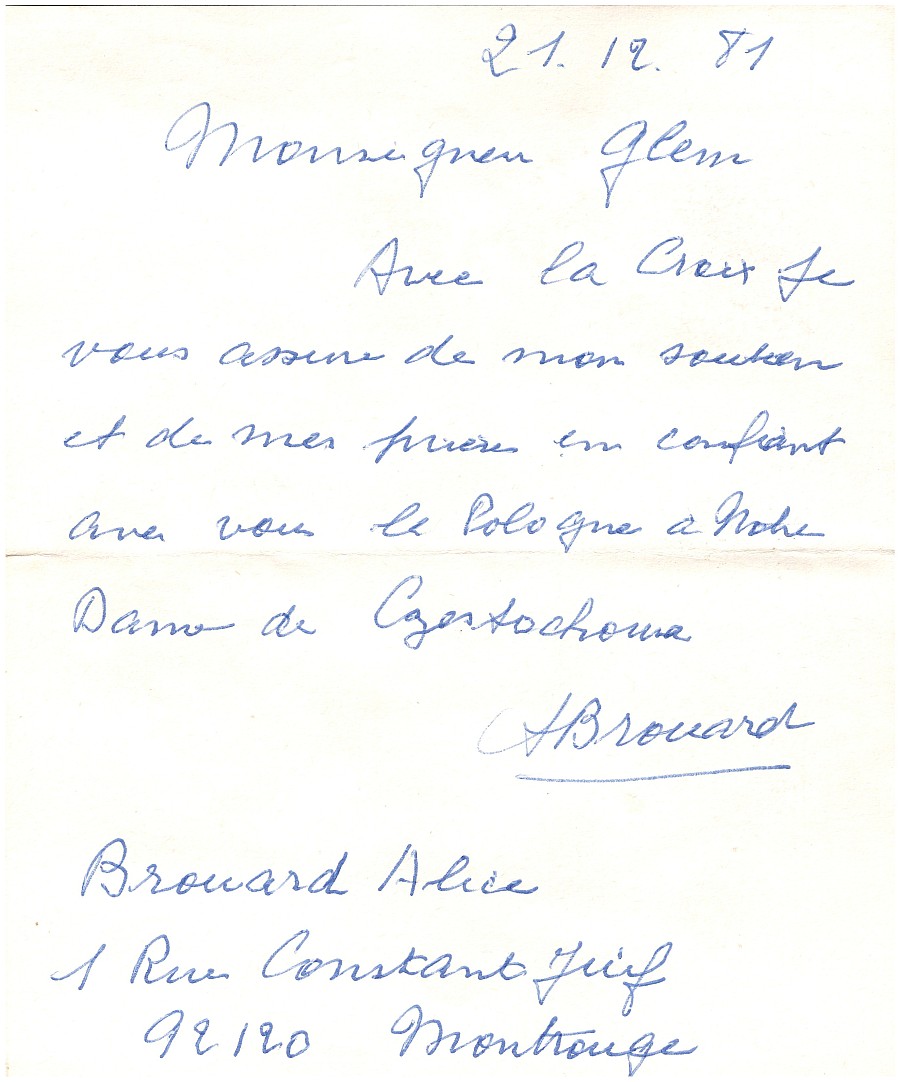 21. 12. 81
Monseigneur Glem
Avec la Croix Je
vous assure de mon soutien
et de mes prières en confiant
avec vous la Pologne a Notre
Dame de Czestochowa
ABrouard
Brouard Alice
1 Rue Constant
92120 Montrouge